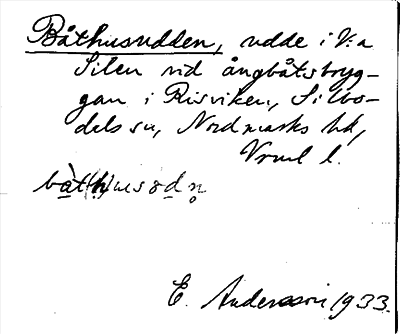 Båthusudden, udde i V:a
Silen vid ångbåtsbryg-
gan i Risviken, Silbo-
dels sn, Nordmarks hd,
Vrml l.
bàt(h)usödn̥
E. Andersson 1933.